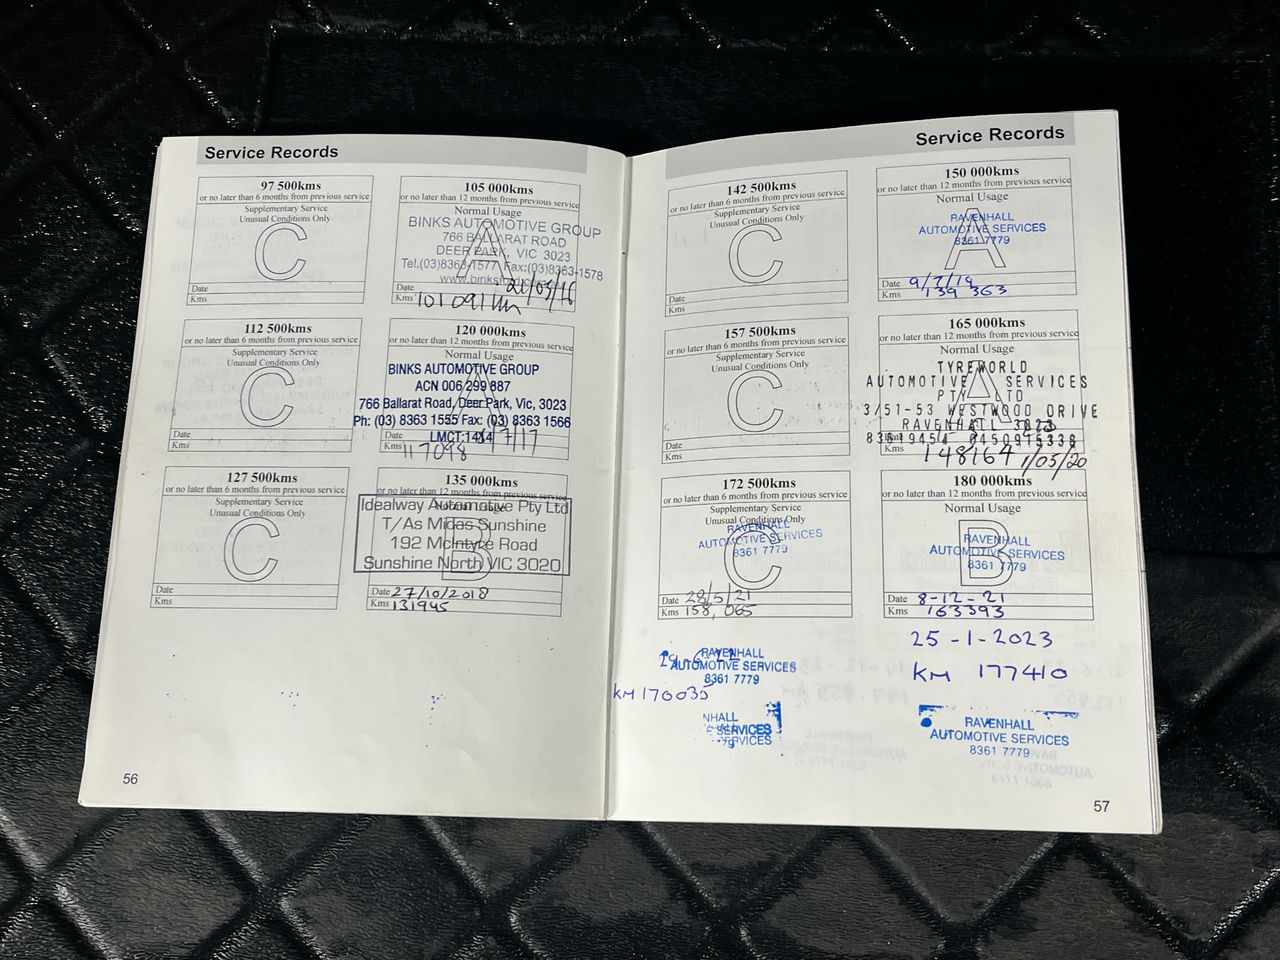 Service Records
97 500kms
or no later than 6 months from previous service
Supplementary Service
Unusual Conditions Only
C
Date
Kms
105 000kms
or no later than 12 months from previous service
Normal Usage
A
BINKS AUTOMOTIVE GROUP
766 BALLARAT ROAD
DEER PARK, VIC 3023
Tel.(03)8363-1577 Fax:(03)8363-1578
Date
Kms 101091km
112 500kms
or no later than 6 months from previous service
Supplementary Service
Unusual Conditions Only
C
Date
Kms
120 000kms
or no later than 12 months from previous service
Normal Usage
A
BINKS AUTOMOTIVE GROUP
ACN 006 299 887
766 Ballarat Road, Deer Park, Vic, 3023
Ph: (03) 8363 1555 Fax: (03) 8363 1566
Date
Kms 117098
127 500kms
or no later than 6 months from previous service
Supplementary Service
Unusual Conditions Only
C
Date
Kms
135 000kms
or no later than 12 months from previous service
Normal Usage
B
Idealway Automotive Pty Ltd
T/As Midas Sunshine
192 McIntyre Road
Sunshine North VIC 3020
Date 27/10/2018
Kms 131945
56
Service Records
142 500kms
or no later than 6 months from previous service
Supplementary Service
Unusual Conditions Only
C
Date
Kms
150 000kms
or no later than 12 months from previous service
Normal Usage
A
RAVENHALL
AUTOMOTIVE SERVICES
8361 7779
Date 9/7/19
Kms 139 363
157 500kms
or no later than 6 months from previous service
Supplementary Service
Unusual Conditions Only
C
Date
Kms
165 000kms
or no later than 12 months from previous service
Normal Usage
A
TYREWORLD
AUTOMOTIVE SERVICES
PTY LTD
3/51-53 WESTWOOD DRIVE
RAVENHALL 3023
83619454 0450915338
Date
Kms 148164 1/05/20
172 500kms
or no later than 6 months from previous service
Supplementary Service
Unusual Conditions Only
C
RAVENHALL
AUTOMOTIVE SERVICES
8361 7779
Date 28/5/21
Kms 158,065
180 000kms
or no later than 12 months from previous service
Normal Usage
B
RAVENHALL
AUTOMOTIVE SERVICES
8361 7779
Date 8-12-21
Kms 163393
RAVENHALL
AUTOMOTIVE SERVICES
8361 7779
KM 170035
NHALL
E SERVICES
SERVICES
25-1-2023
KM 177410
RAVENHALL
AUTOMOTIVE SERVICES
8361 7779
57